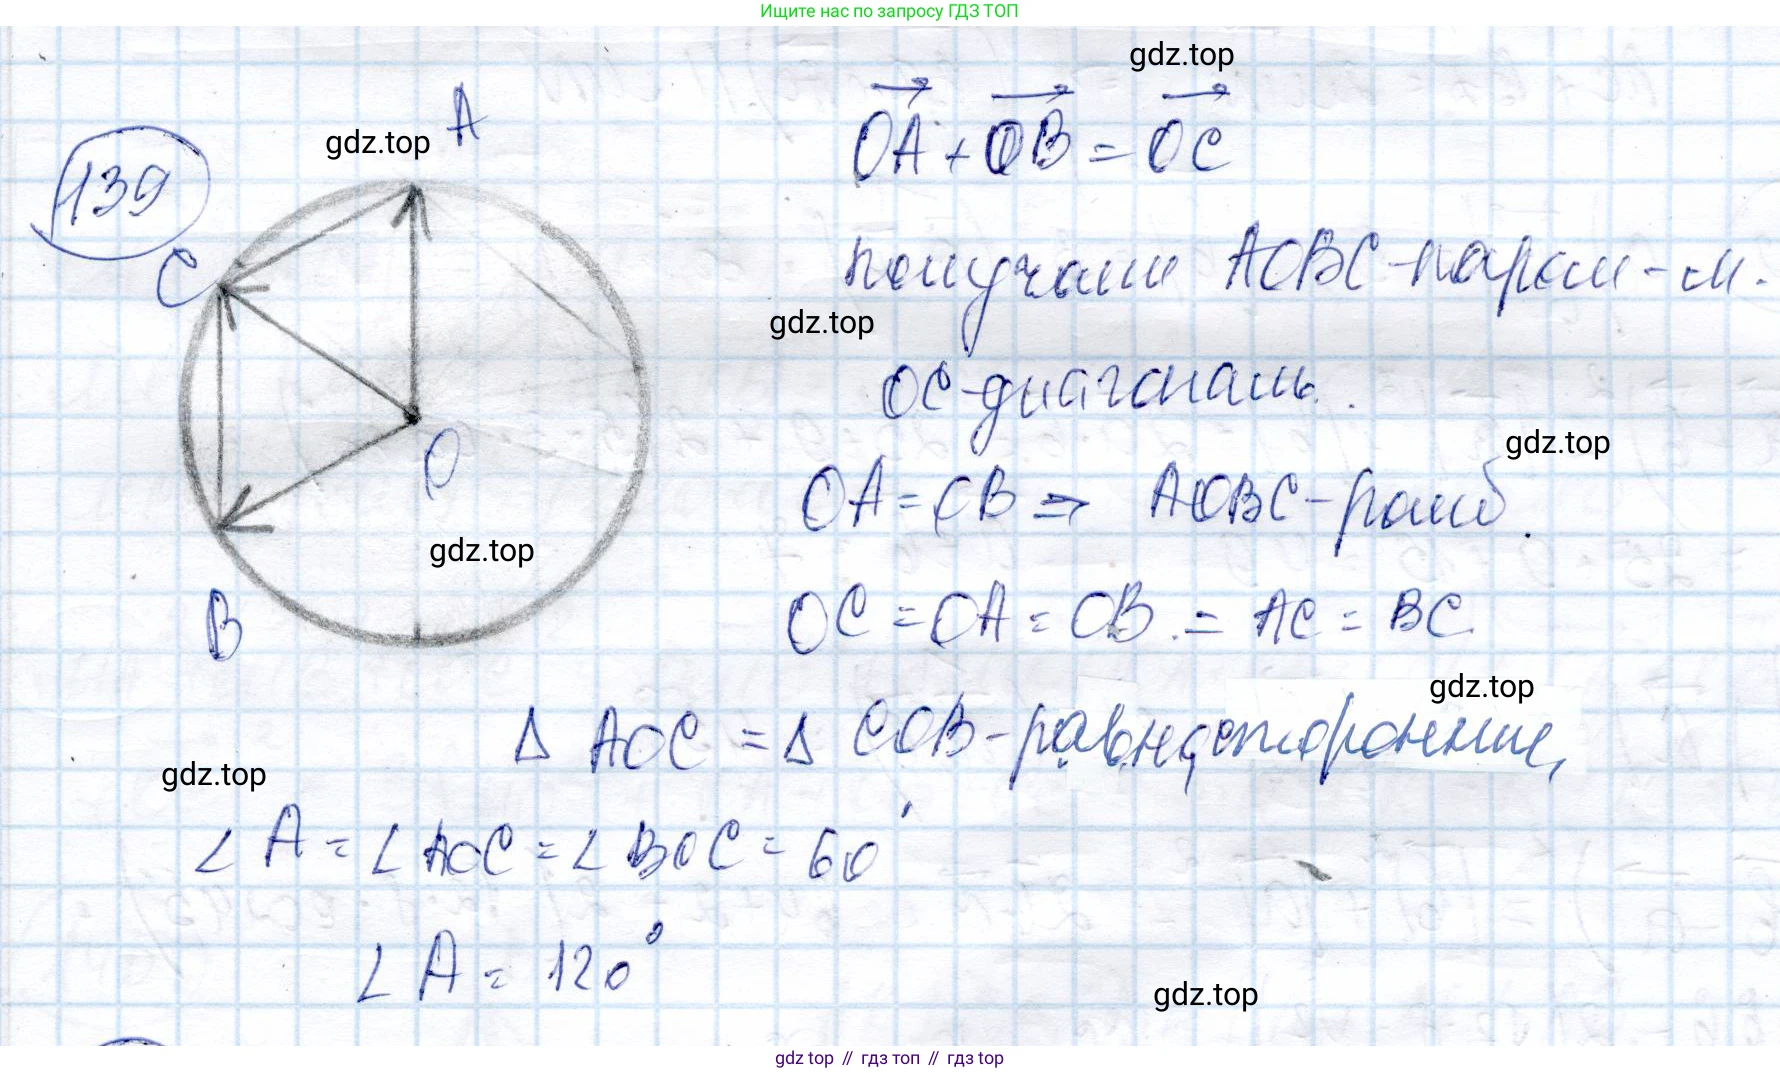 Ищите нас по запросу ГДЗ ТОП
139
A
C
O
B
gdz.top
gdz.top
OA + OB = OC
получаем AOBC-парал-м.
gdz.top
OC-диагональ.
gdz.top
OA = OB ⇒ AOBC-ромб.
gdz.top
OC = OA = OB = AC = BC
gdz.top
Δ AOC = Δ COB-равносторонние,
gdz.top
∠ A = ∠ AOC = ∠ BOC = 60°
∠ A = 120°
gdz.top
gdz top // гдз топ // gdz top